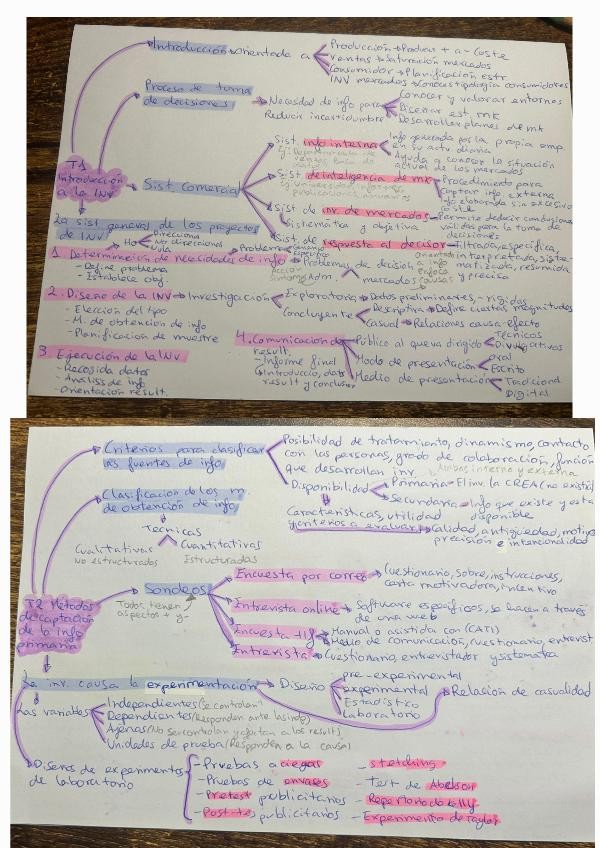 Introducción → Orientada a
Producción → Produc + a - Coste
ventas → Saturación mercados
Consumidor → Planificación estr
INV mercados → Conoces tipología consumidores
Proceso de toma
de decisiones
Necesidad de info para
Reducir incertidumbre
Conocer y valorar entornos
Diseñar est. mk
Desarrollar planes de mk
T1
Introducción
a la INV
Sist. comercial
Sist. info interna
Info generada por la propia emp
en su actv diaria
Ayuda a conocer la situación
actual de los mercados
Sist. de inteligencia de mk
Procedimiento para
captar info externa
Info elaborada sin excesivo
coste
Sist de inv. de mercados
Sistemática y objetiva
Permite deducir conclusiones
válidas para la toma de
decisiones
Sist. de respuesta al decisor
Filtrada, específica,
interpretada, siste-
matizada, resumida
y precisa
La sist general de los proyectos
de INV
Ho
Direccional
No direccional
Nula
1. Determinación de necesidades de info
- Define problema
- Establece obj.
Problema
Problemas de decisión
Adm.
mercados
Orientado
a info
Enfoca
causas
Acción
síntomas
2. Diseño de la INV → Investigación
- Elección del tipo
- M. de obtención de info
- Planificación de muestre
Exploratoria → Datos preliminares, - rígidas
Concluyente
Descriptiva → Define ciertas magnitudes
Casual → Relaciones causa-efecto
3. Ejecución de la INV
- Recogida datos
- Análisis de info
- Orientación result.
4. Comunicación de
result.
- Informe final
Introducción, datos
result y conclusion
Público al que va dirigido
Técnicos
Divulgativos
Modo de presentación
Oral
Escrito
Medio de presentación
Tradicional
Digital
Criterios para clasificar
las fuentes de info
Posibilidad de tratamiento, dinamismo, contacto
con las personas, grado de colaboración, función
que desarrollan inv.
Ambas interno y externa
Disponibilidad
Primaria → El inv. la CREA (no existía)
Secundaria → Info que existe y esta
disponible
Características, utilidad
y criterios a evaluar → Calidad, antigüedad, motivo
precisión e intencionalidad
Clasificación de los m.
de obtención de info
Técnicas
Cualitativas
no estructurados
Cuantitativas
Estructuradas
T2 Métodos
de captación
de la info
primaria
Sondeos
Todos tienen
aspectos + y -
Encuesta por correo
Cuestionario, sobre, instrucciones,
carta motivadora, incentivo
Entrevista online → Software específicos, se hacen a través
de una web
Encuesta tlf
Manual o asistida con (CATI)
Medio de comunicación, cuestionario, entrevist
Entrevista → Cuestionario, entrevistador y sistemática
La inv. causa la experimentación → Diseño
pre-experimental
experimental
Estadístico
Laboratorio
Relación de casualidad
Las variables
Independientes (Se controlan)
Dependientes (Responden ante las indep)
Ajenas (No se controlan y afectan a los result)
Unidades de prueba (Responden a la causa)
Diseños de experimentos
de laboratorio
- Pruebas a ciegas
- Pruebas de envases
- Pretest publicitarios
- Post-tes publicitarios
- stetching
- Test de Abelson
- Repertorio de Kelly
- Experimento de Taylor